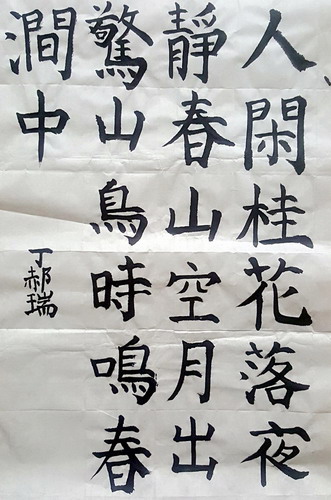 人閑桂花落夜
靜春山空月出
驚山鳥時鳴春
澗中
丁郝瑞